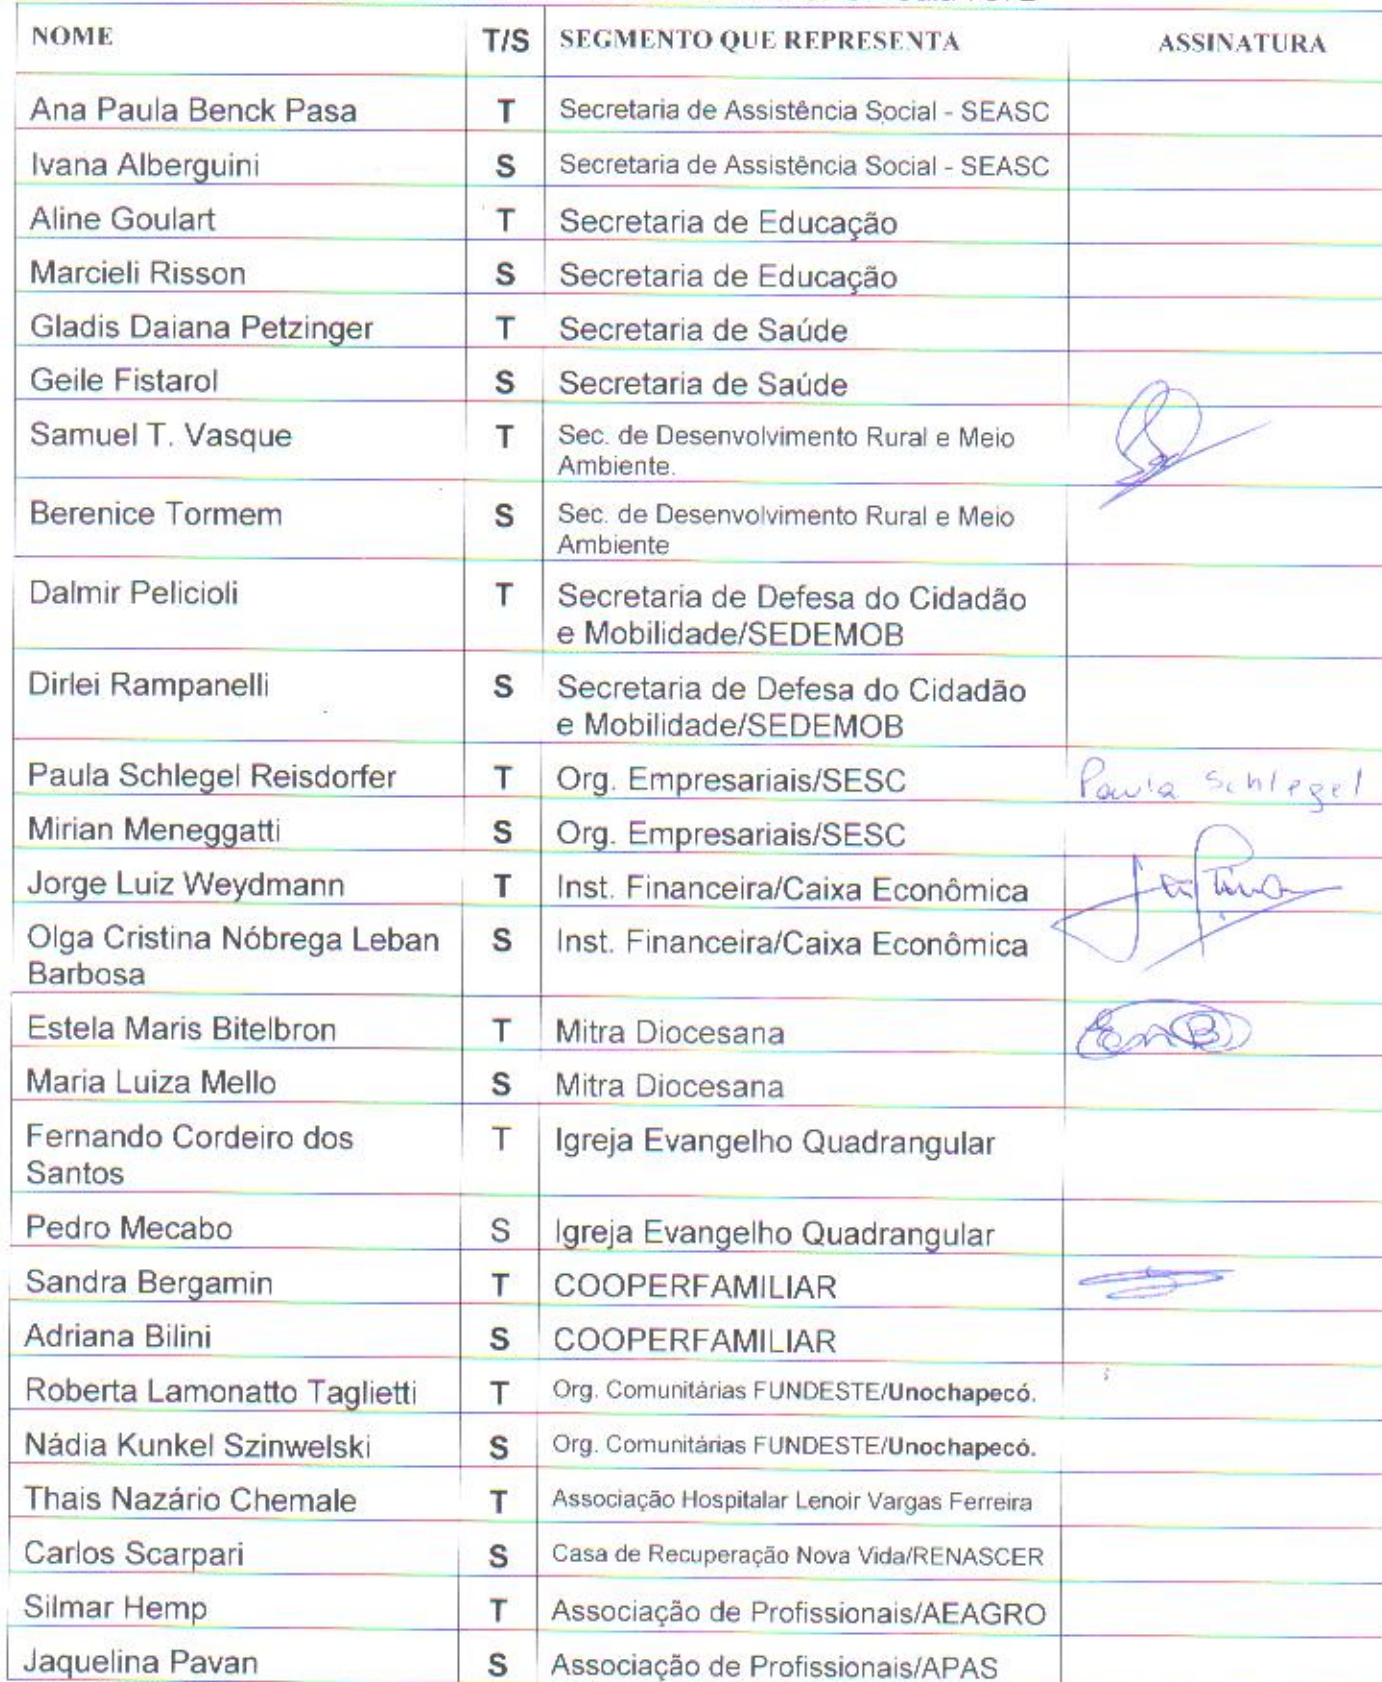 NOME T/S SEGMENTO QUE REPRESENTA ASSINATURA
Ana Paula Benck Pasa T Secretaria de Assistência Social - SEASC
Ivana Alberguini S Secretaria de Assistência Social - SEASC
Aline Goulart T Secretaria de Educação
Marcieli Risson S Secretaria de Educação
Gladis Daiana Petzinger T Secretaria de Saúde
Geile Fistarol S Secretaria de Saúde
Samuel T. Vasque T Sec. de Desenvolvimento Rural e Meio
Ambiente.
Berenice Tormem S Sec. de Desenvolvimento Rural e Meio
Ambiente
Dalmir Pelicioli T Secretaria de Defesa do Cidadão
e Mobilidade/SEDEMOB
Dirlei Rampanelli S Secretaria de Defesa do Cidadão
e Mobilidade/SEDEMOB
Paula Schlegel Reisdorfer T Org. Empresariais/SESC Paula Schlegel
Mirian Meneggatti S Org. Empresariais/SESC
Jorge Luiz Weydmann T Inst. Financeira/Caixa Econômica
Olga Cristina Nóbrega Leban S Inst. Financeira/Caixa Econômica
Barbosa
Estela Maris Bitelbron T Mitra Diocesana EmB
Maria Luiza Mello S Mitra Diocesana
Fernando Cordeiro dos T Igreja Evangelho Quadrangular
Santos
Pedro Mecabo S Igreja Evangelho Quadrangular
Sandra Bergamin T COOPERFAMILIAR
Adriana Bilini S COOPERFAMILIAR
Roberta Lamonatto Taglietti T Org. Comunitárias FUNDESTE/Unochapecó.
Nádia Kunkel Szinwelski S Org. Comunitárias FUNDESTE/Unochapecó.
Thais Nazário Chemale T Associação Hospitalar Lenoir Vargas Ferreira
Carlos Scarpari S Casa de Recuperação Nova Vida/RENASCER
Silmar Hemp T Associação de Profissionais/AEAGRO
Jaquelina Pavan S Associação de Profissionais/APAS